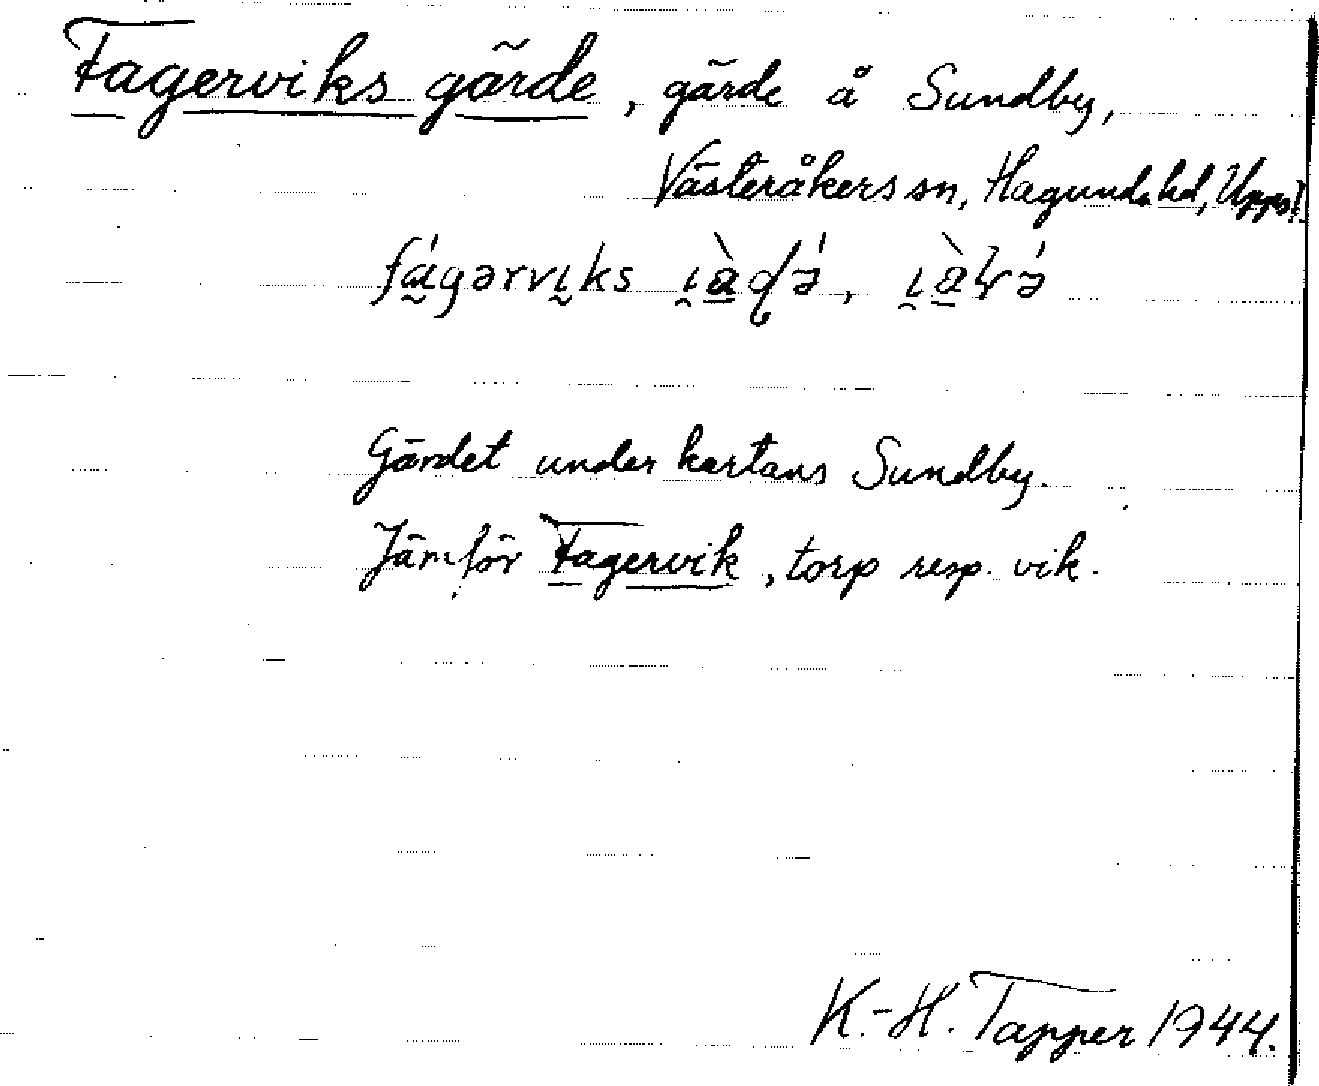 Fagerviks gärde, gärde å Sundby,
Västeråkers sn, Hagunda hd, Uppsl.
fágərvıks ı̯àɖə́, ı̯àɽə́
Gärdet under kartans Sundby.
Jämför Fagervik, torp resp. vik.
K.-H. Tapper 1944.